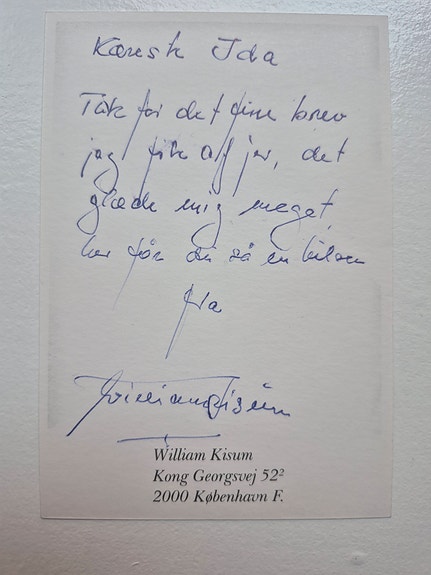 Kæreste Ida
Tak for det fine brev
jeg fik af jer, det
glæde mig meget,
her får du så en hilsen
fra
William Kisum
William Kisum
Kong Georgsvej 52²
2000 København F.